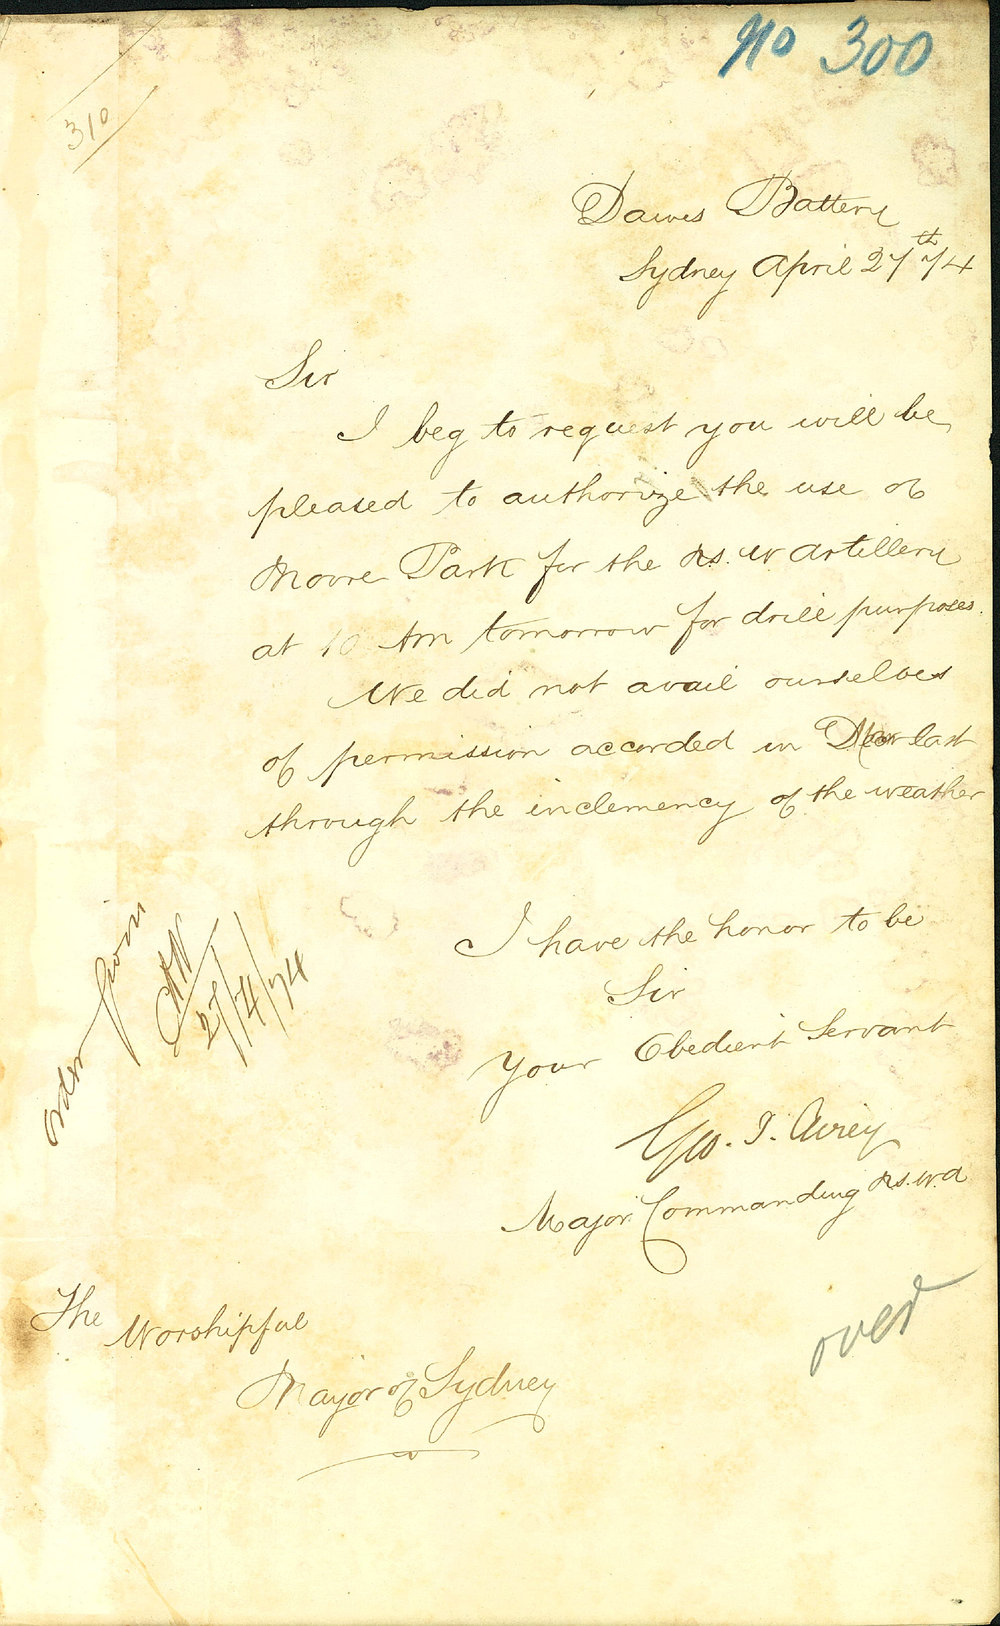 No 300
310
Dawes Battery
Sydney April 27th 74
Sir
I beg to request you will be
pleased to authorize the use of
Moore Park for the N.S.W Artillery
at 10 Am tomorrow for drill purposes.
We did not avail ourselves
of permission accorded in last
through the inclemency of the weather
I have the honor to be
Sir
Your Obedient Servant
Geo. J. Airey
Major Commanding N.S.W.A
order given
27/4/74
The Worshipful
Mayor of Sydney
over